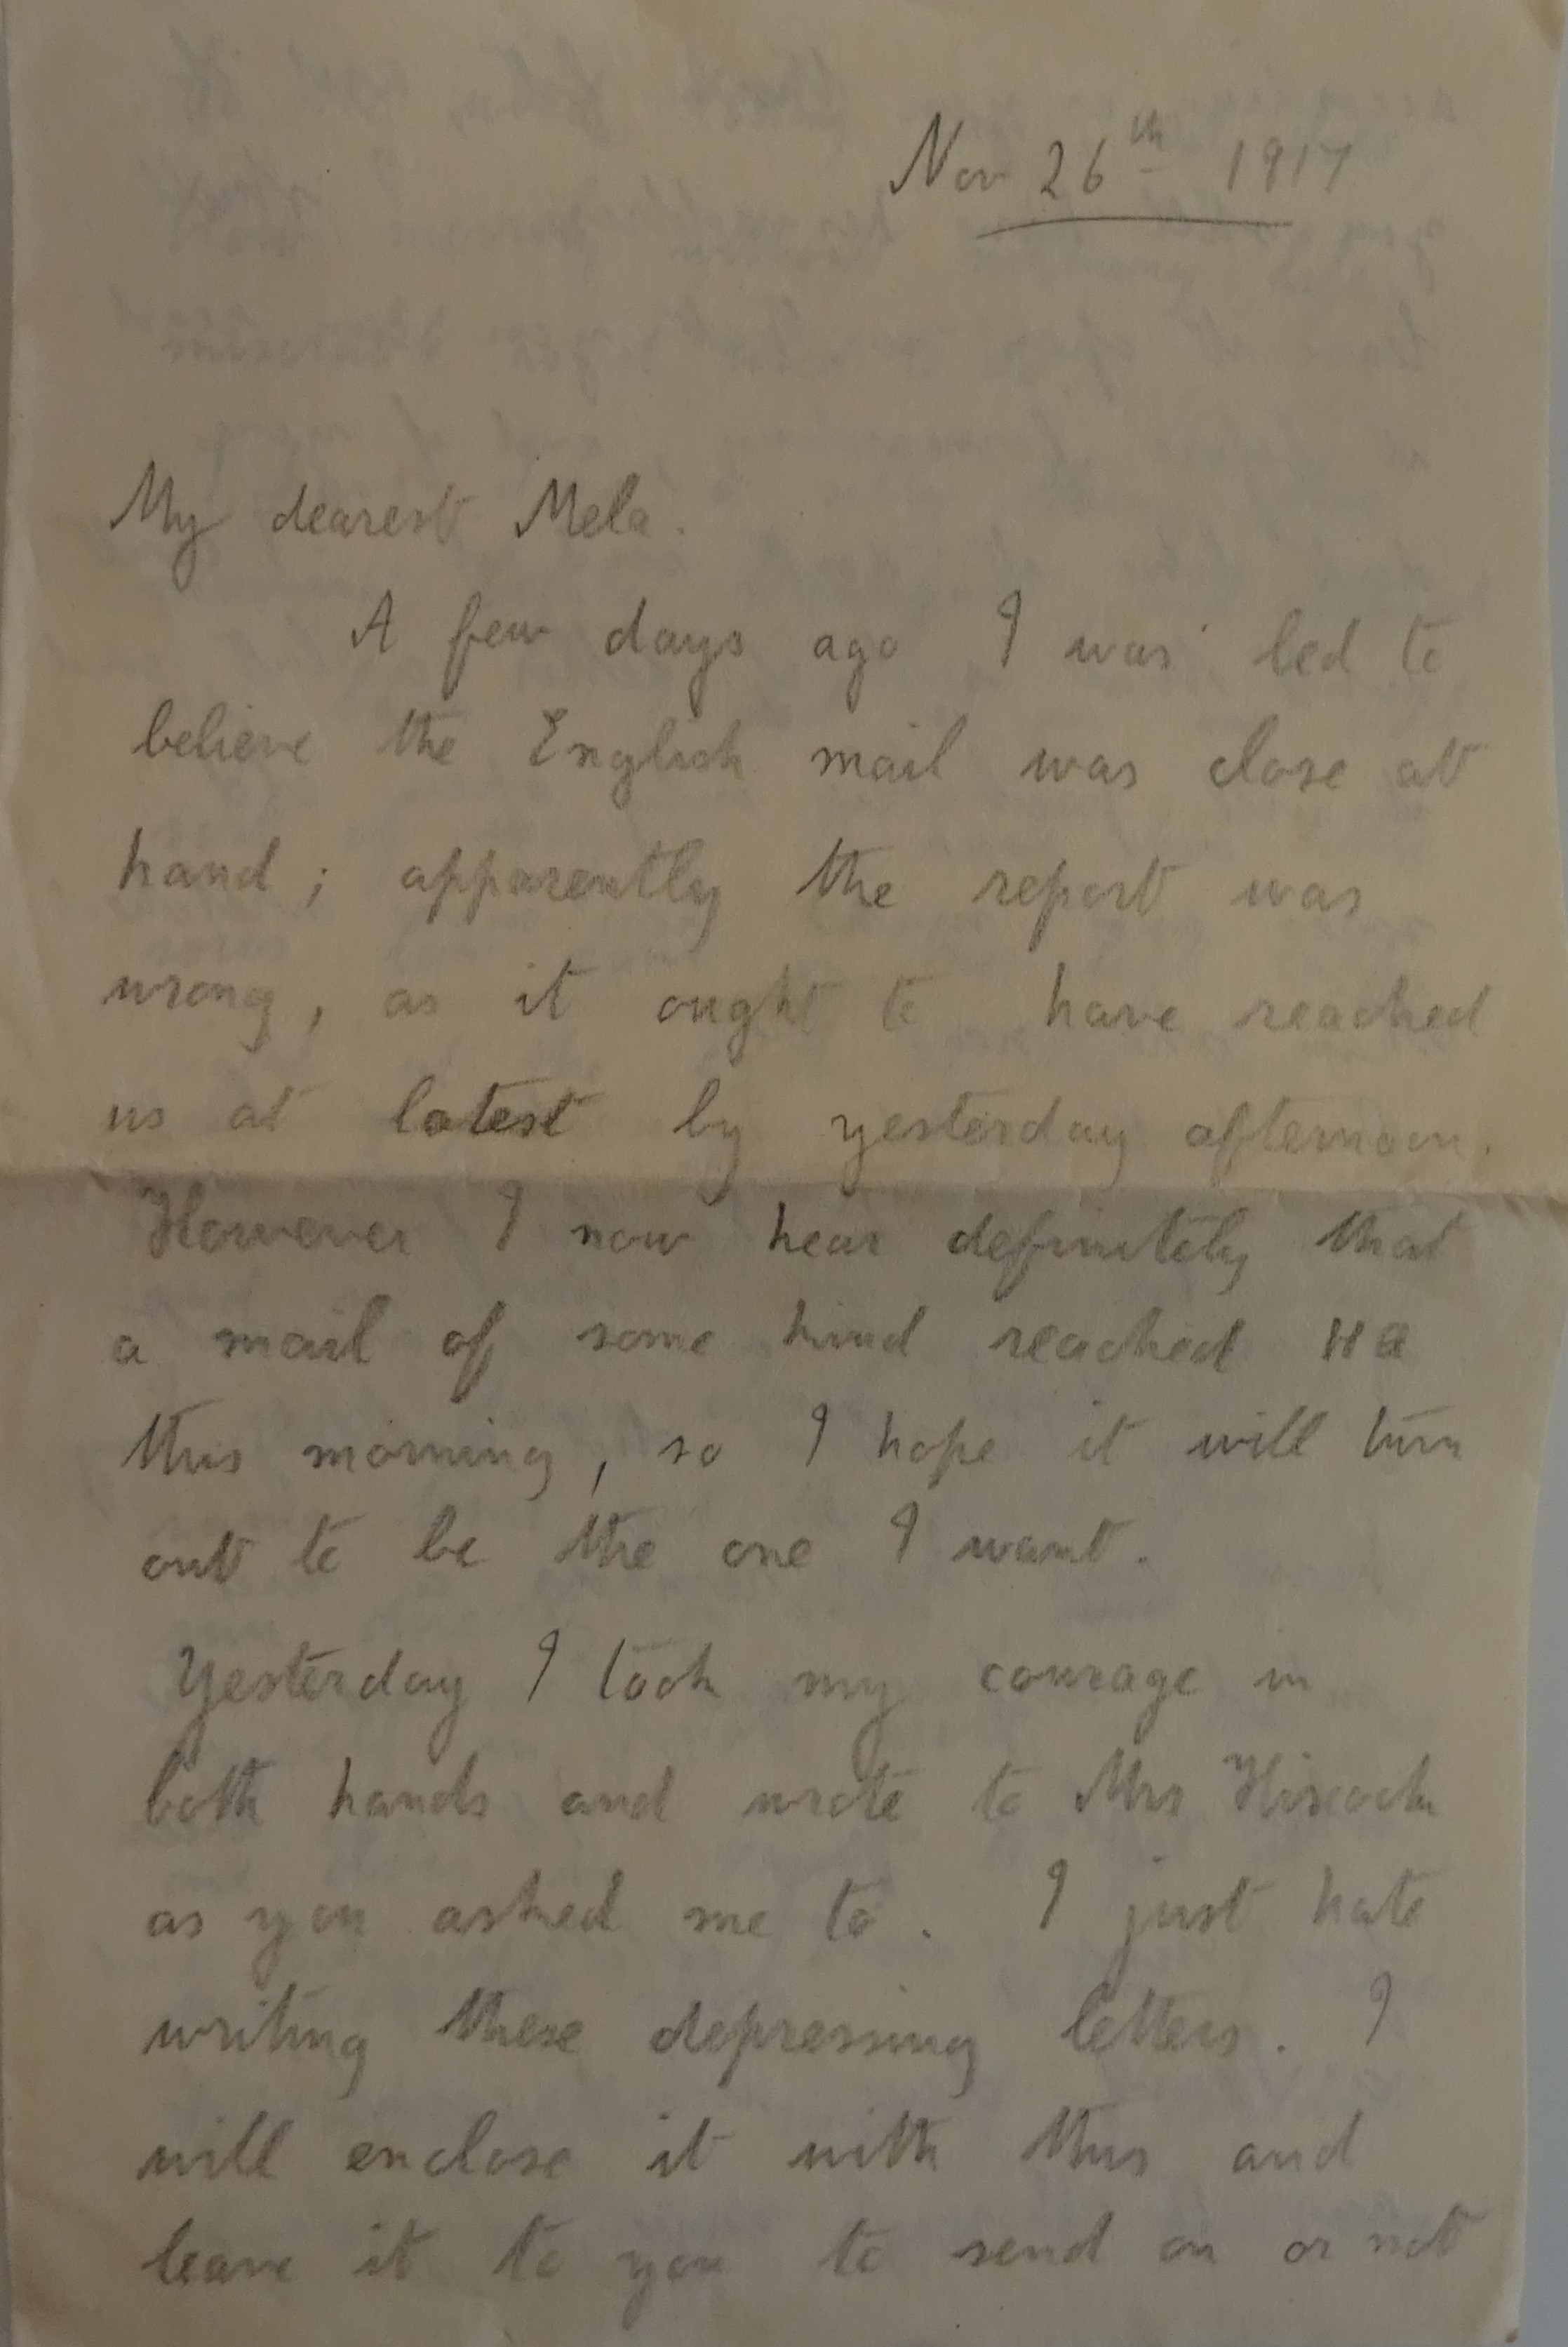 Nov 26th 1917
My dearest Mela.
A few days ago I was led to
believe the English mail was close at
hand; apparently the report was
wrong, as it ought to have reached
us at latest by yesterday afternoon.
However I now hear definitely that
a mail of some kind reached HQ
this morning, so I hope it will turn
out to be the one I want.
Yesterday I took my courage in
both hands and wrote to Mrs Hiscock
as you asked me to. I just hate
writing these depressing letters. I
will enclose it with this and
leave it to you to send on or not